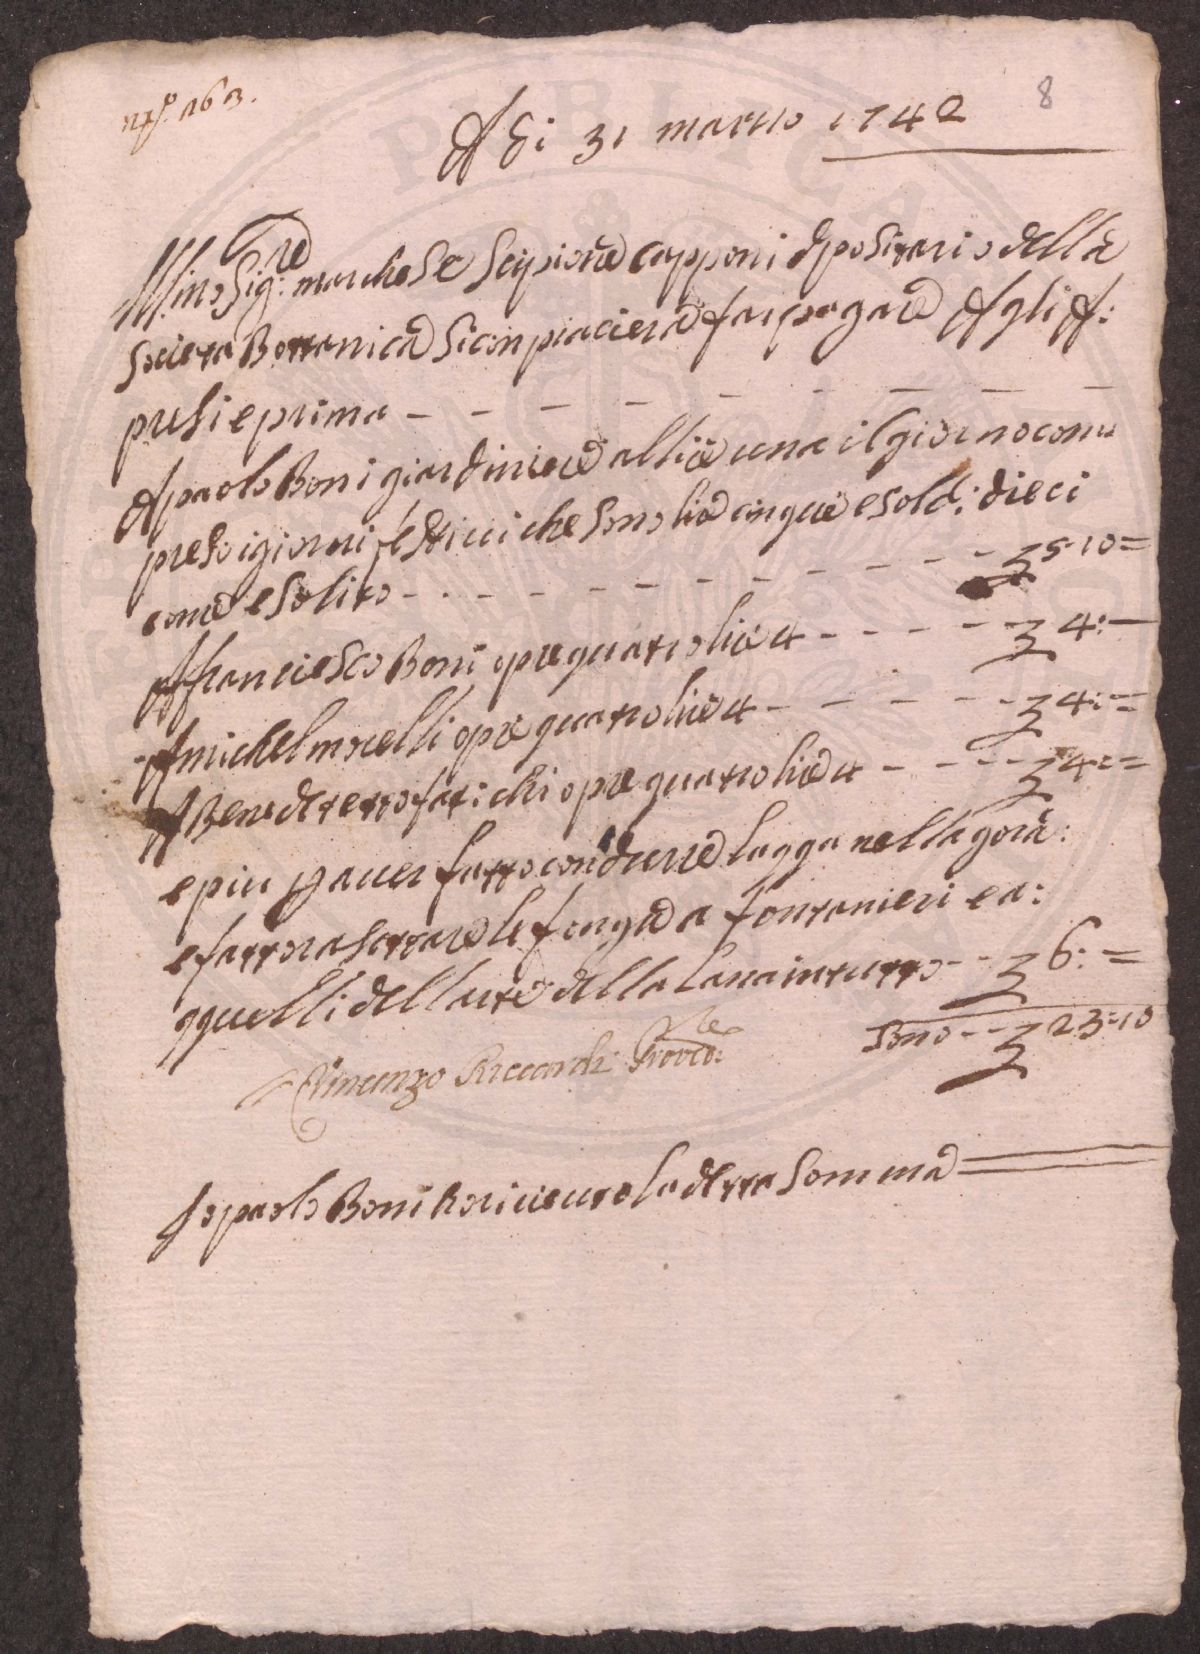 N.º 163.
8
A di 31 marzo 1742
Ill.mo Sig.re marchese Scipione capponi dpositario della
Societa Bottanica Si conpiaciera far pagare Agli A:
presi e prima — — — — — — — — —
A paolo Boni giardiniere a llire una il giorno conu
preso i giorni festivi che sono lire cinque e sold: dieci
come e solito - - - - - - - - - - 5-10=
A franciesco Boni opre quatro lire 4 - - - - - 4:—
A michel morelli opre quatro lire 4 - - - - - - 4:=
A Benedetetto fatichi opre quatro lire 4 - - - - 4:==
e piu p auer fatto condurre laqqa nella gora:
e fatto rasettare le fongne a fontanieri e a:
qquelli dellarte della Lana in tutto - - 6: =
Sono - - 23:10
Vincenzo Riccardi Proved.re
Io paolo Boni ho riceuto la detta Somma